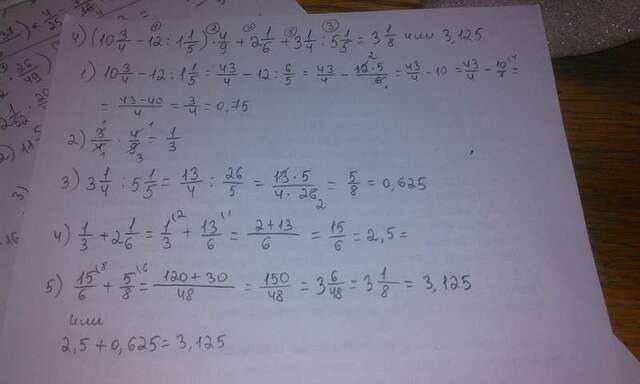 4) (10 3/4 - 12 : 1 1/5) · 4/9 + 2 1/6 + 3 1/4 : 5 1/5 = 3 1/8 или 3,125
1) 10 3/4 - 12 : 1 1/5 = 43/4 - 12 : 6/5 = 43/4 - 12·5/6 = 43/4 - 10 = 43/4 - 10/1 =
= 43-40/4 = 3/4 = 0,75
2) 3/4 · 4/9 = 1/3
3) 3 1/4 : 5 1/5 = 13/4 : 26/5 = 13·5/4·26 = 5/8 = 0,625
4) 1/3 + 2 1/6 = 1/3 + 13/6 = 2+13/6 = 15/6 = 2,5 =
5) 15/6 + 5/8 = 120+30/48 = 150/48 = 3 6/48 = 3 1/8 = 3,125
или
2,5 + 0,625 = 3,125